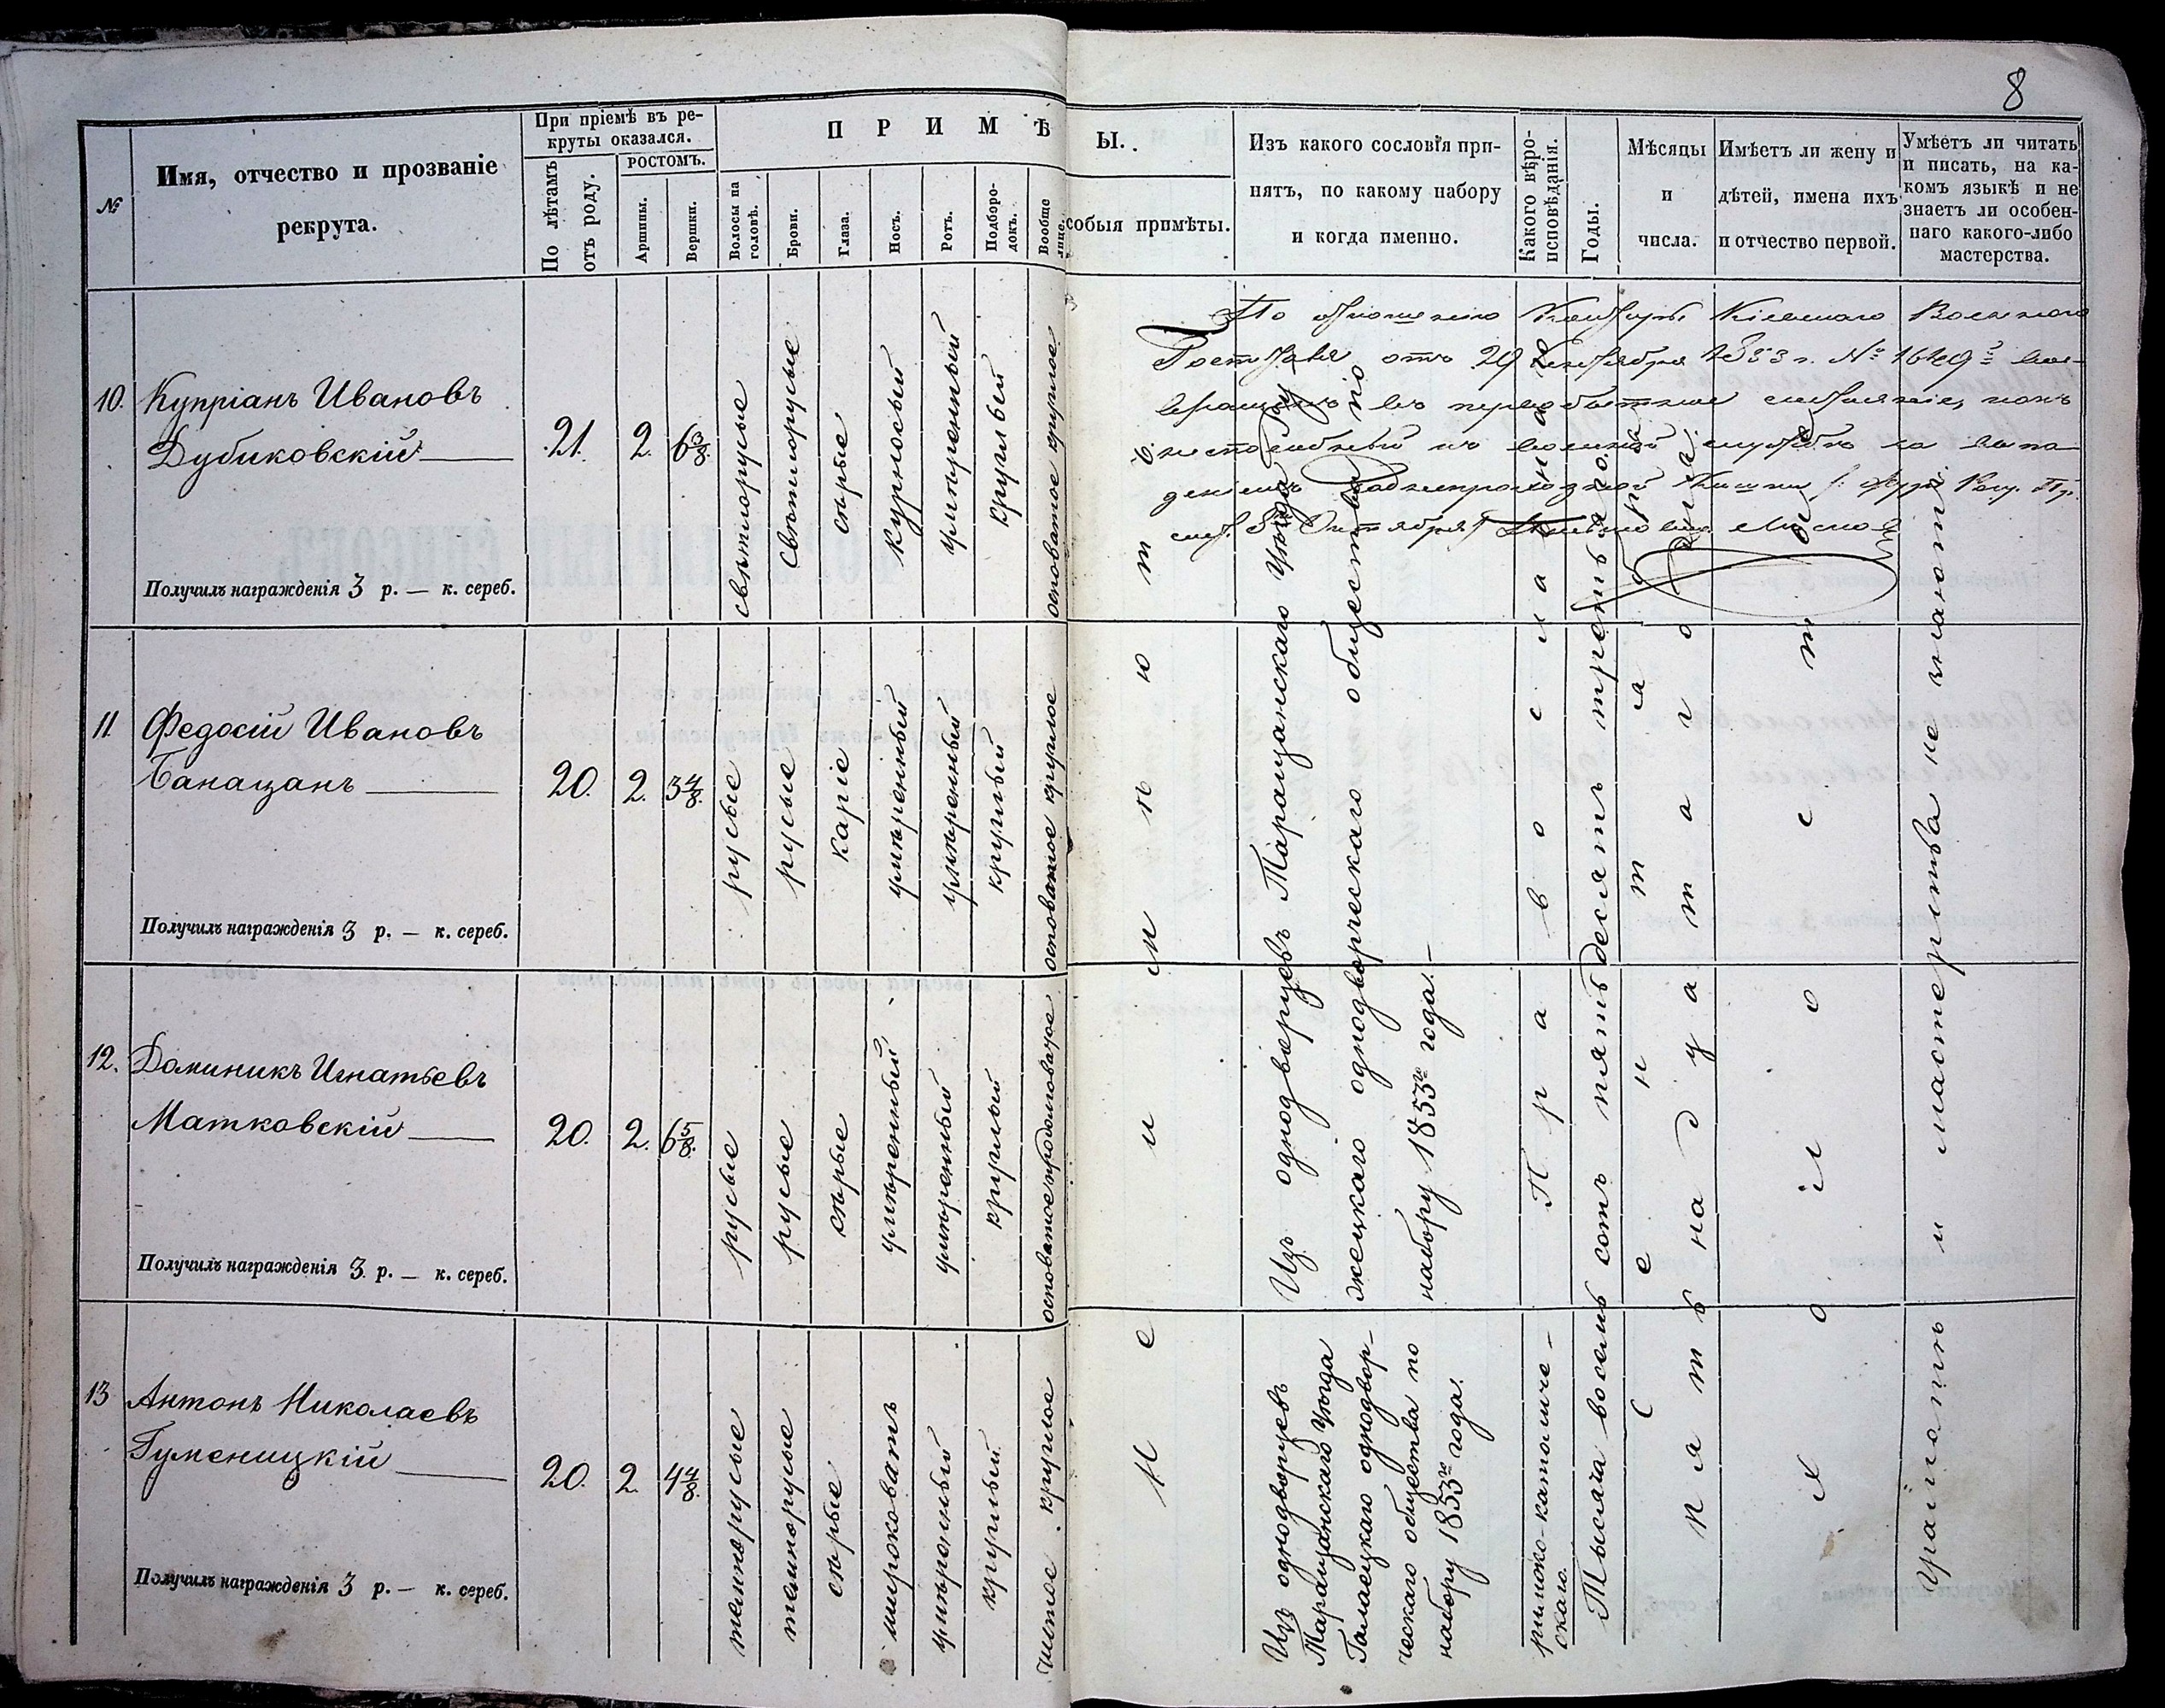 8
№
Имя, отчество и прозваніе
рекрута.
При пріемѣ въ ре-
круты оказался.
По лѣтамъ
отъ роду.
РОСТОМЪ.
Аршины.
Вершки.
ПРИМѢ
Волосы на
головѣ.
Брови.
Глаза.
Носъ.
Ротъ.
Подборо-
докъ.
Вообще
лице.
Ы.
собыя примѣты.
Изъ какого сословія при-
нятъ, по какому набору
и когда именно.
Какого вѣро-
исповѣданія.
Годы.
Мѣсяцы
и
числа.
Имѣетъ ли жену и
дѣтей, имена ихъ
и отчество первой.
Умѣетъ ли читать
и писать, на ка-
комъ языкѣ и не
знаетъ ли особен-
наго какого-либо
мастерства.
10.
Купріанъ Ивановъ
Дубиковскій
21.
2.
6 3/8.
свѣтлорусые
свѣтлорусые
сѣрые
курносый
умѣренный
круглый
основатое круглое
Получилъ награжденія 3 р. — к. сереб.
По отношенію Конторы Кіевскаго Военнаго
Госпиталя отъ 29 Сентября 1853 г. №
въ первобытное
неспособный къ военной службѣ за выпа
деніемъ кишки
Октября
11.
Федосій Ивановъ
Банацанъ
20.
2.
3 4/8.
русые
русые
каріе
умѣренный
умѣренный
круглый
основатое круглое
Получилъ награжденія 3 р. — к. сереб.
12.
Доминикъ Игнатьевъ
Матковскій
20.
2.
6 5/8.
русые
русые
сѣрые
умѣренный
умѣренный
круглый
основатое продолговатое
Получилъ награжденія 3 р. — к. сереб.
13
Антонъ Николаевъ
Гуменицкій
20.
2.
4 4/8.
темнорусые
темнорусые
сѣрые
широковатъ
умѣренный
круглый
чистое круглое
Получилъ награжденія 3 р. — к. сереб.
Не имѣютъ
Изъ однодворцевъ Таращанскаго Уѣзда
жецкаго однодворческаго общества по
набору 1853го года. —
Изъ однодворцевъ
Таращанскаго Уѣзда
Галаецкаго однодвор-
ческаго общества по
набору 1853го года.
Православнаго
римско-католиче-
скаго.
Тысяча восемь сотъ пятьдесятъ третьяго.
Сентября
пятьнадцатаго
Холостые
Грамотѣ и мастерства не знаютъ.